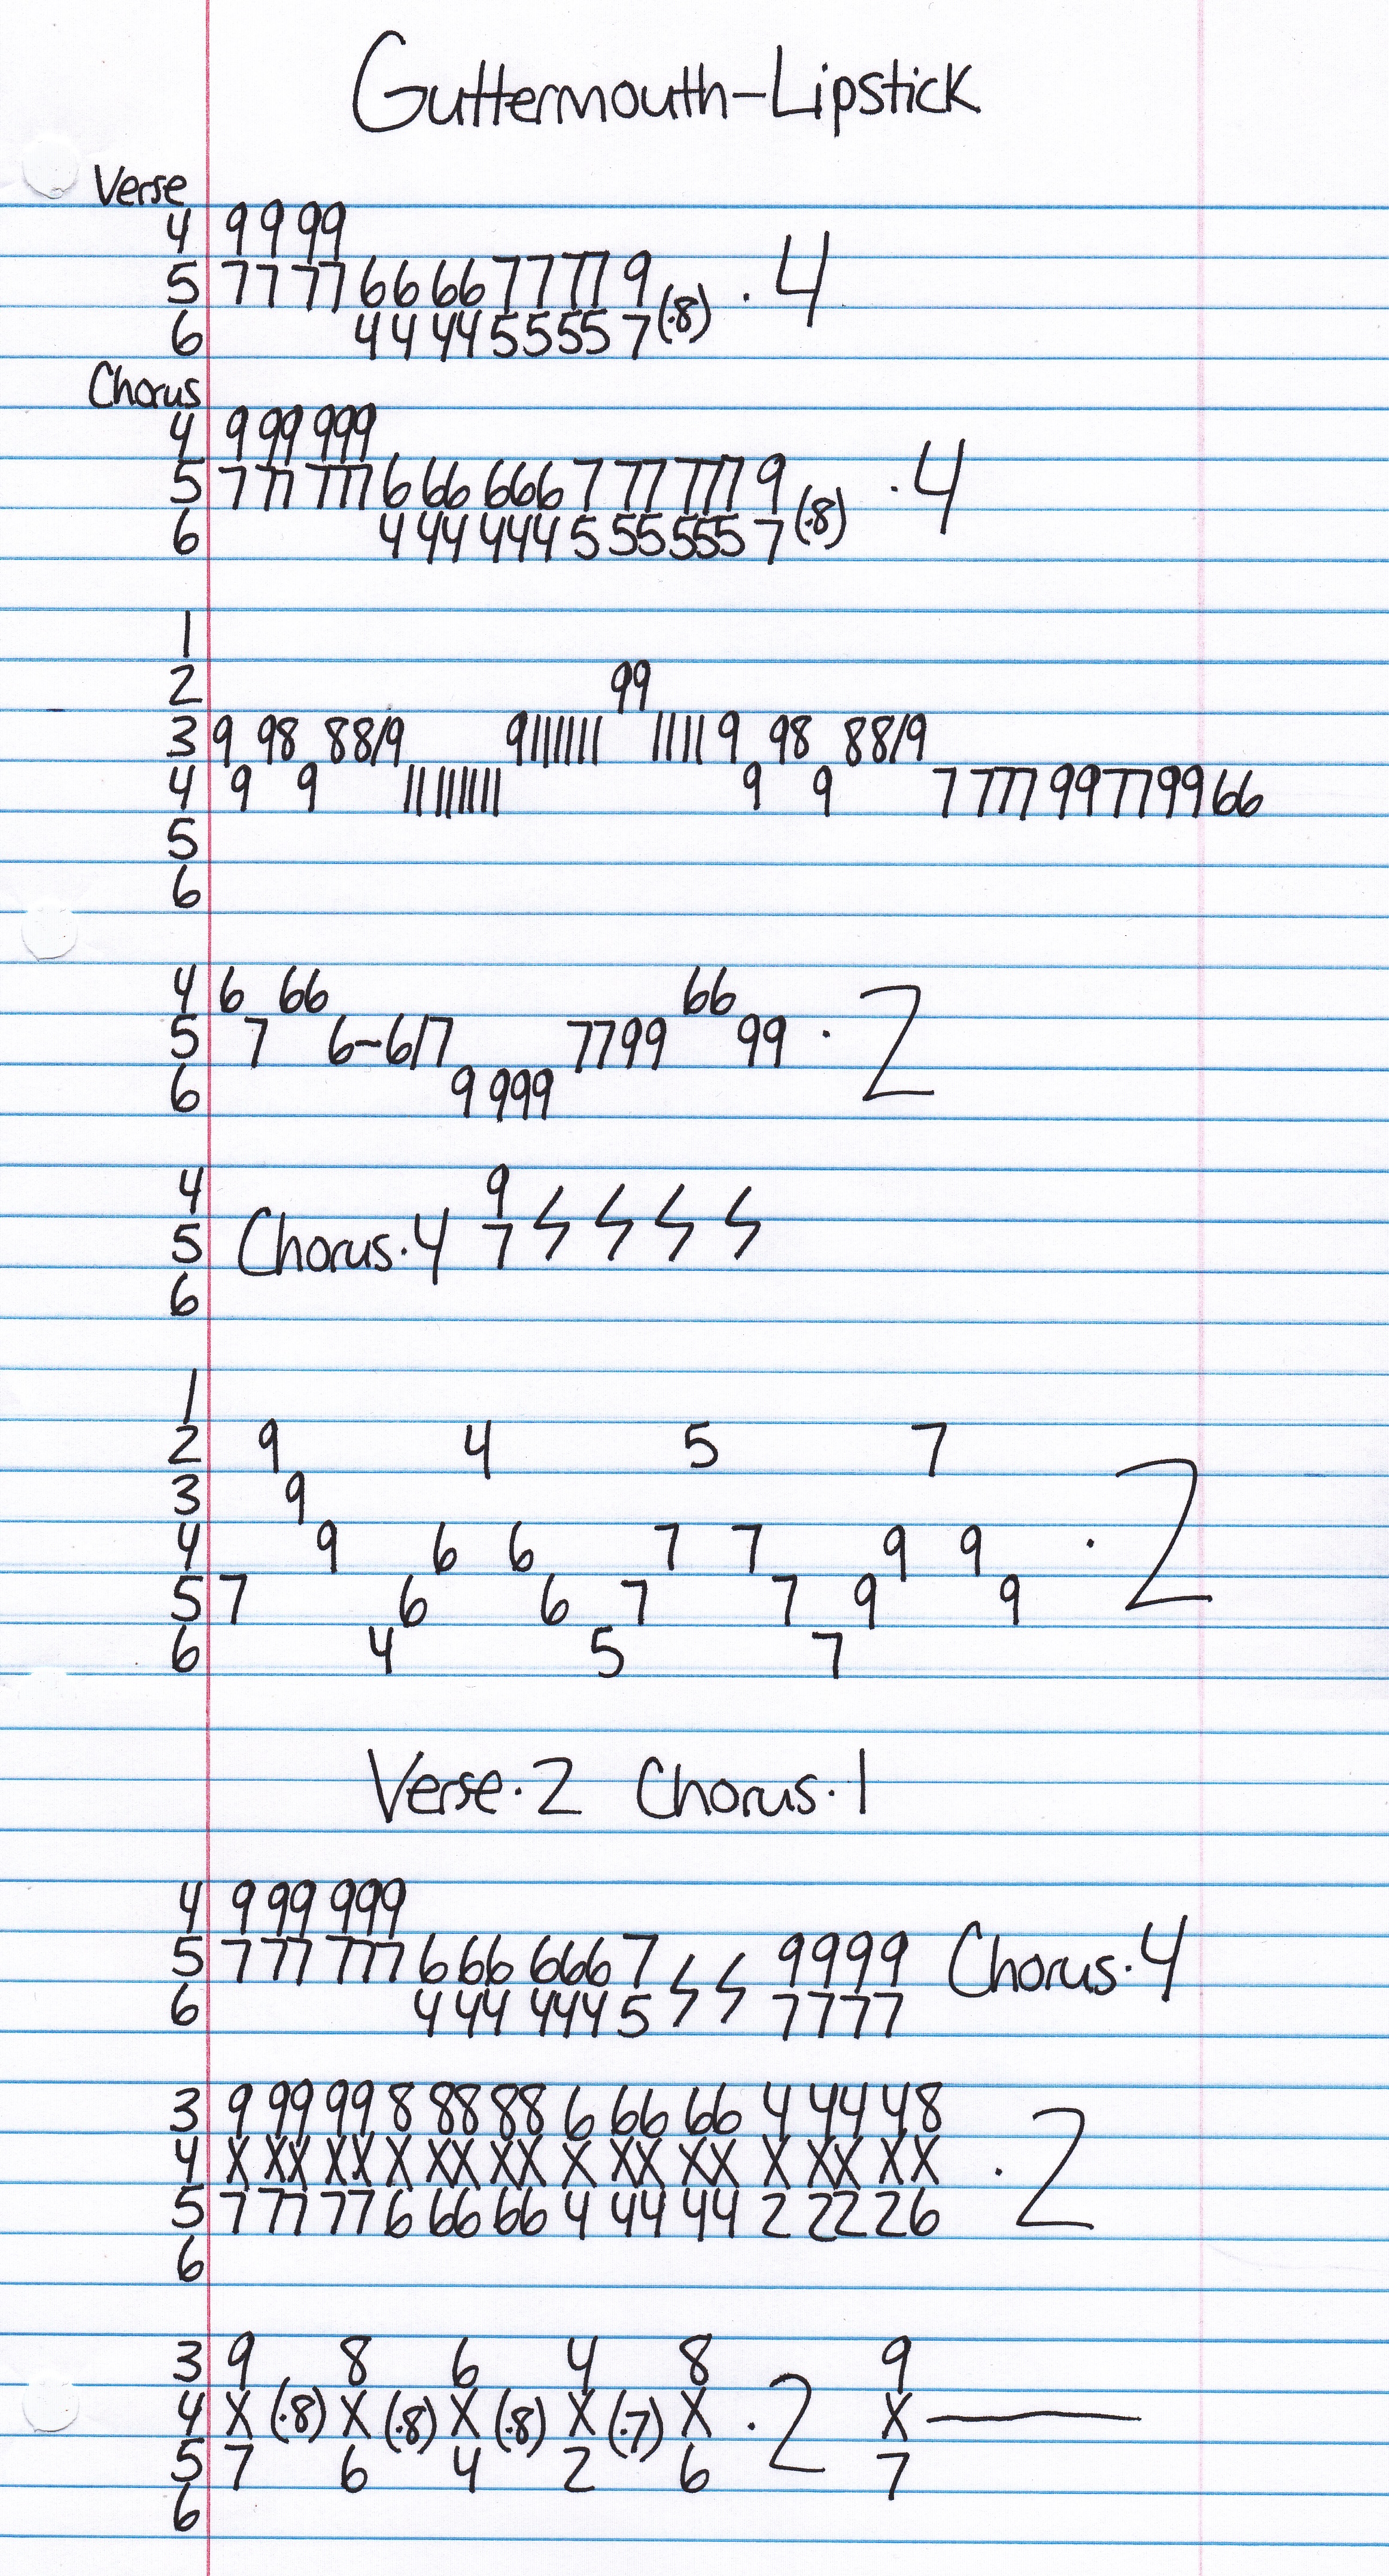 Guttermouth-Lipstick
Verse
4 9 9 99
5 77 77 66 66 77 77 9
6 44 44 5555 7 (·8) · 4
Chorus
4 9 99 999
5 7 77 777 6 66 666 7 77 777 9
6 4 44 444 5 55 555 7 (·8) · 4
1
2 99
3 9 98 88/9 9||||||| |||| 9 98 88/9
4 9 9 ||||||||| 9 9 7 777 99 77 99 66
5
6
4 6 66 66
5 7 6-6/7 7799 99 · 2
6 9 999
4 9
5 Chorus·4 7
6
1
2 9 4 5 7
3 9
4 9 6 6 7 7 9 9 · 2
5 7 6 6 7 7 9 9
6 4 5 7
Verse·2 Chorus·1
4 9 99 999
5 7 77 777 6 66 666 7 9999 Chorus·4
6 4 44 444 5 7777
3 9 99 99 8 88 88 6 66 66 4 44 48
4 X XX XX X XX XX X XX XX X XX XX · 2
5 7 77 77 6 66 66 4 44 44 2 22 26
6
3 9 8 6 4 8 9
4 X (·8) X (·8) X (·8) X (·7) X · 2 X
5 7 6 4 2 6 7
6